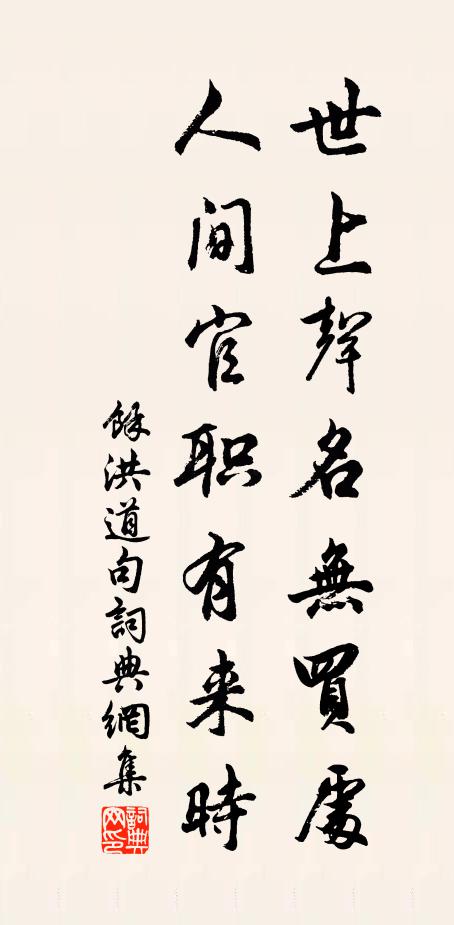 世上聲名無買處
人间官职有来時
餘洪道句詞典網集
詞典网印